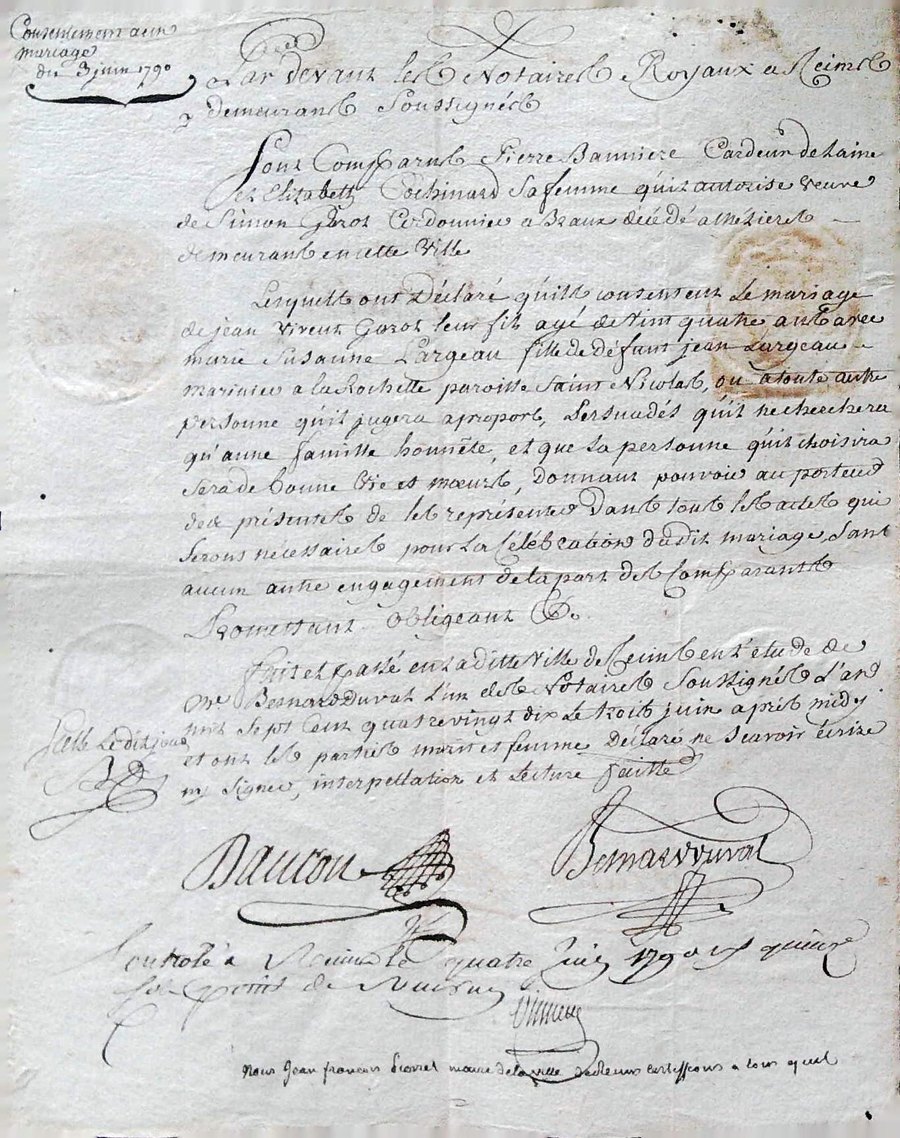 Consentement a un
mariage
du 3 juin 1790
Par devant les Notaires Royaux a Reims
y demeurans Soussignés
Sont Comparus Pierre Banniere Cardeur de Laine
et Elizabeth Cochinard Sa femme qu'il autorise veuve
de Simon Garot Cordonnier a Braux décédé a Mézieres
demeurans en cette Ville
Lesquels ont Déclaré qu'ils consentent Le mariage
de jean Garot leur fils agé de vint quatre ans avec
marie Susanne Largeau fille de défunt jean Largeau
marinier a la Rochelle paroisse Saint Nicolas, ou a toute autre
personne qu'il jugera apropos, Persuadés qu'il ne cherchera
qu'une famille honnête, et que la personne qu'il choisira
Sera de bonne Vie et mœurs, donnant pouvoir au porteur
des présentes de les représenter Dans tous les actes qui
Serons nécessaires pour La Célébration dudit mariage Sans
aucun autre engagement de la part des Comparants
Promettant Obligeant &.
Fait et Passé en Laditte Ville de Reims en L'étude de
Me Bernard Duval L'un des Notaires Soussignés L'an
mil Sept Cent quatrevingt dix Le trois juin après midy
et ont les parties mari et femme Déclaré ne Scavoir écrire
ny Signer, interpellation et Lecture faitte
Scellé Ledit jour
BD
Daucon
Bernardduval
Controlé a Reims Le quatre Juin 1790
Nous Jean francois maire de la ville certiffions a tous quil